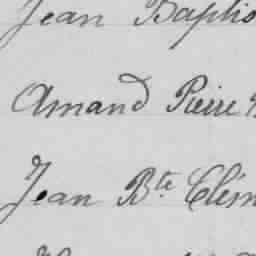 Jean Baptis
Amand Pierre
Jean Bte Clém